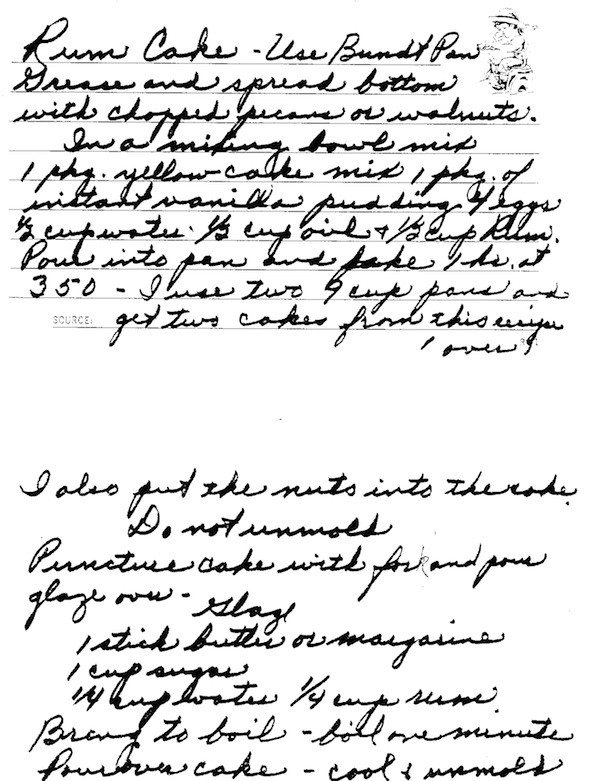 Rum Cake - Use Bundt Pan
Grease and spread bottom
with chopped pecans or walnuts.
In a mixing bowl mix
1 pkg. yellow cake mix 1 pkg. of
instant vanilla pudding 4 eggs
½ cup water. ½ cup oil + ½ cup Rum.
Pour into pan and bake 1 hr. at
350 - I use two 9 cup pans and
SOURCE: get two cakes from this recipe
(over)
I also put the nuts into the cake
Do not unmold
Puncture cake with fork and pour
glaze over -
Glaze
1 stick butter or margarine
1 cup sugar
1/4 cup water 1/4 cup rum
Bring to boil - boil one minute
Pour over cake - cool & unmold